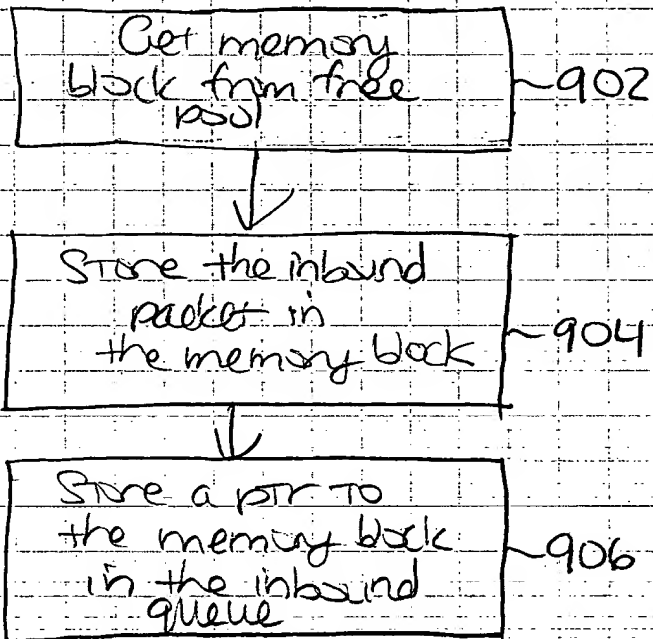 Get memory
block from free
pool
~902
Store the inbound
packet in
the memory block
~904
Store a ptr to
the memory block
in the inbound
queue
~906